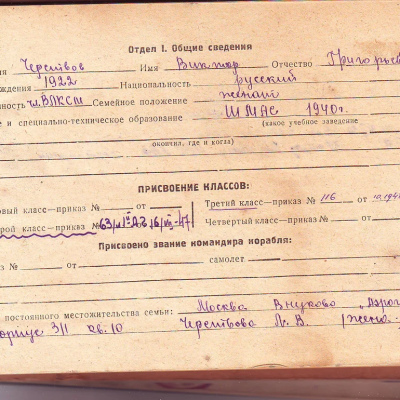 Отдел I. Общие сведения
ия Черетвов Имя Виктор Отчество Григорьев
ждения 1922 Национальность русский
ность чл. ВЛКСМ Семейное положение женат
е и специально-техническое образование ШМАС 1940г.
(какое учебное заведение
окончил, где и когда)
ПРИСВОЕНИЕ КЛАССОВ:
рвый класс—приказ № от Третий класс—приказ № 116 от 10.194
рой класс—приказ № от 16/VII-47 Четвертый класс—приказ № от
Присвоено звание командира корабля:
аз № от самолет.
постоянного местожительства семьи: Москва Внуково Аэрог
орпус 3/1 кв. 10 Черетвова Л. В. /жена